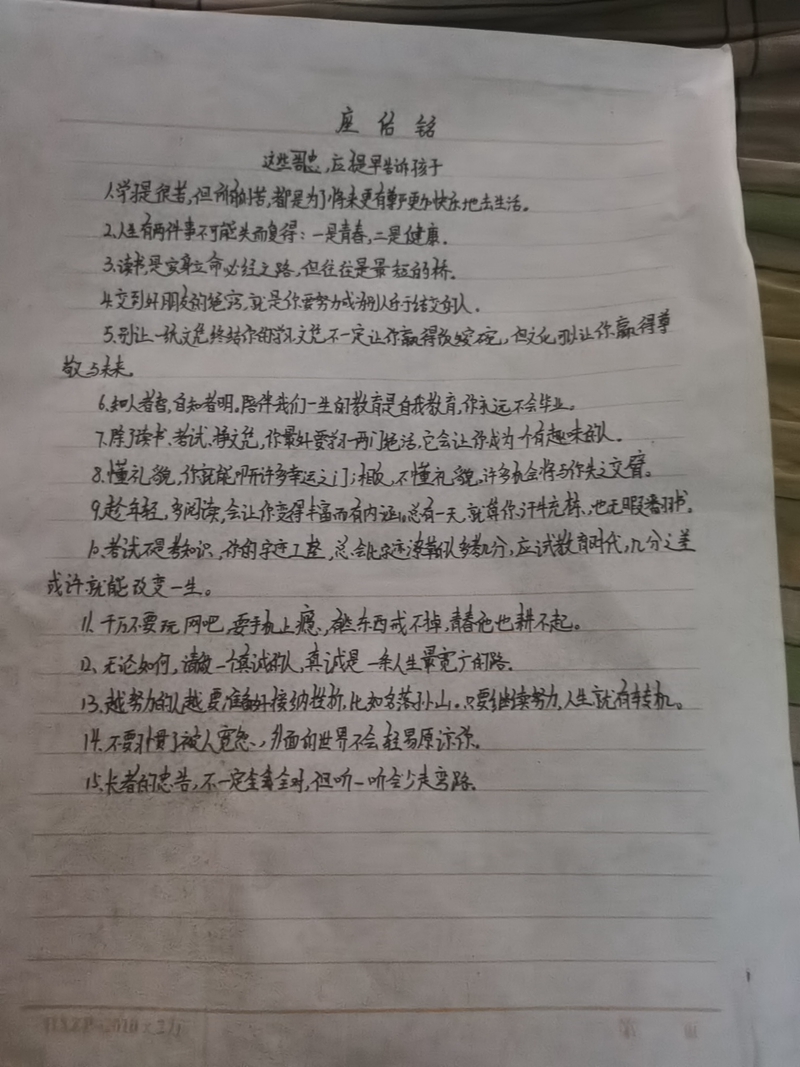 座佑铭
这些忠,应提早告诉孩子
1.学习是很苦,但所有的苦,都是为了将来更有尊严更加快乐地去生活。
2.人生有两件事不可能失而复得:一是青春,二是健康.
3.读书,是安身立命必经之路,但往往是最短的桥.
4.交到好朋友的绝窍,就是你要努力成为别人乐于结交的人.
5.别让一纸文凭终结你的学习,文凭不一定让你赢得饭碗,但文化可以让你赢得尊
敬与未来.
6.知人者智,自知者明。陪伴我们一生的教育是自我教育,你永远不会毕业。
7.除了读书、考试、挣文凭,你最好要学一两门绝活,它会让你成为一个有趣味的人.
8.懂礼貌,你就能叩开许多幸运之门;相反,不懂礼貌,许多机会将与你失之交臂。
9.趁年轻,多阅读,会让你变得丰富而有内涵。总有一天,就算你汗牛充栋,也无暇翻书。
10.考试不是考知识,你的字迹工整,总会比字迹潦草的人多考几分,应试教育时代,几分之差
或许就能改变一生。
11.千万不要玩网吧,耍手机上瘾,有些东西戒不掉,青春她也耗不起。
12.无论如何,请做一个真诚的人,真诚是一条人生最宽广的路.
13.越努力的人越要准备好接纳挫折,比如名落孙山。只要继续努力,人生就有转机。
14.不要习惯了被人宽恕,外面的世界不会轻易原谅你.
15.长者的忠告,不一定全对,但听一听会少走弯路.